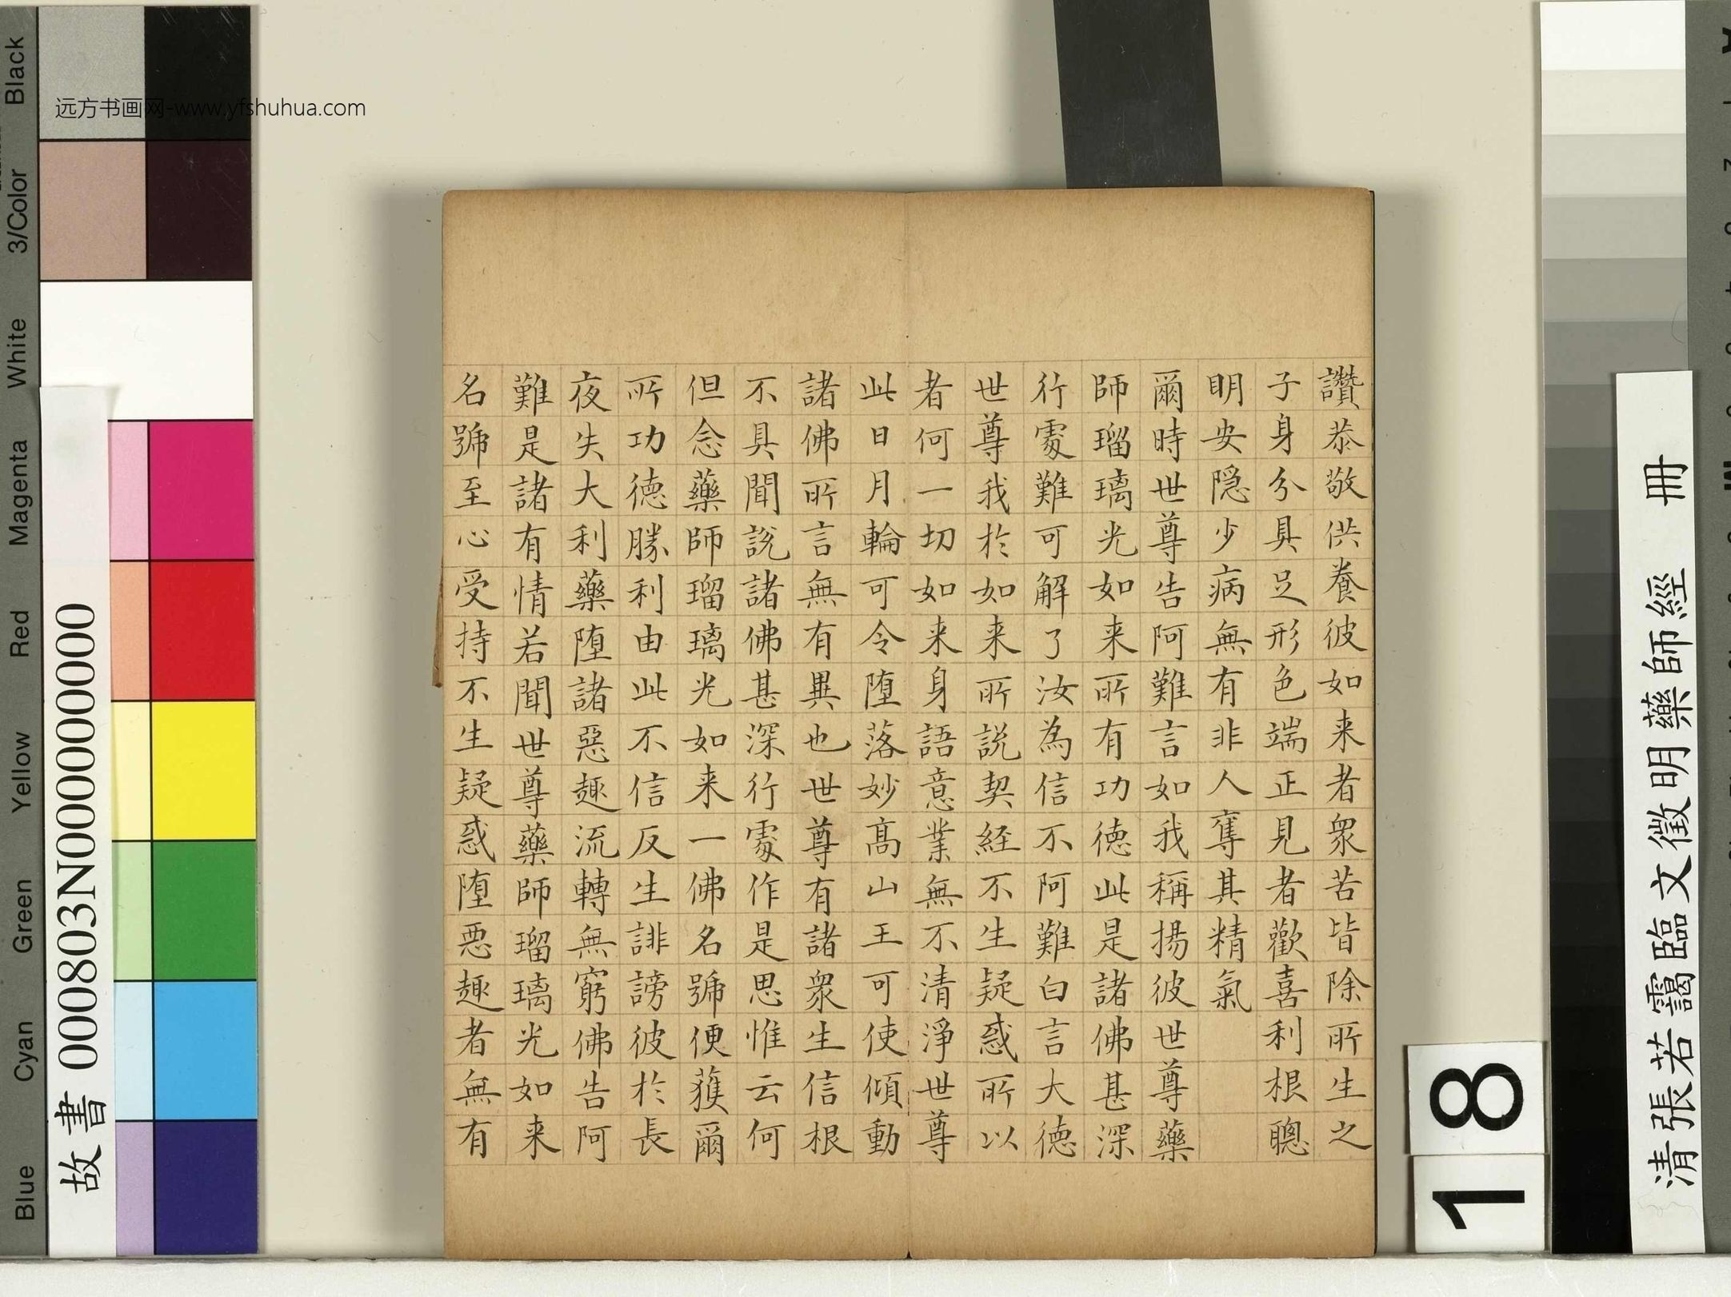 讚恭敬供養彼如来者衆苦皆除所生之
子身分具足形色端正見者歡喜利根聰
明安隱少病無有非人奪其精氣
爾時世尊告阿難言如我稱揚彼世尊藥
師瑠璃光如来所有功德此是諸佛甚深
行處難可解了汝為信不阿難白言大德
世尊我於如来所説契經不生疑惑所以
者何一切如来身語意業無不清淨世尊
此日月輪可令墮落妙高山王可使傾動
諸佛所言無有異也世尊有諸衆生信根
不具聞說諸佛甚深行處作是思惟云何
但念藥師瑠璃光如来一佛名號便獲爾
所功德勝利由此不信反生誹謗彼於長
夜失大利藥墮諸惡趣流轉無窮佛告阿
難是諸有情若聞世尊藥師瑠璃光如来
名號至心受持不生疑惑墮惡趣者無有
清張若靄臨文徵明藥師經 冊
18
故書 000803N000000000
远方书画网-www.yfshuhua.com
Black
3/Color
White
Magenta
Red
Yellow
Green
Cyan
Blue